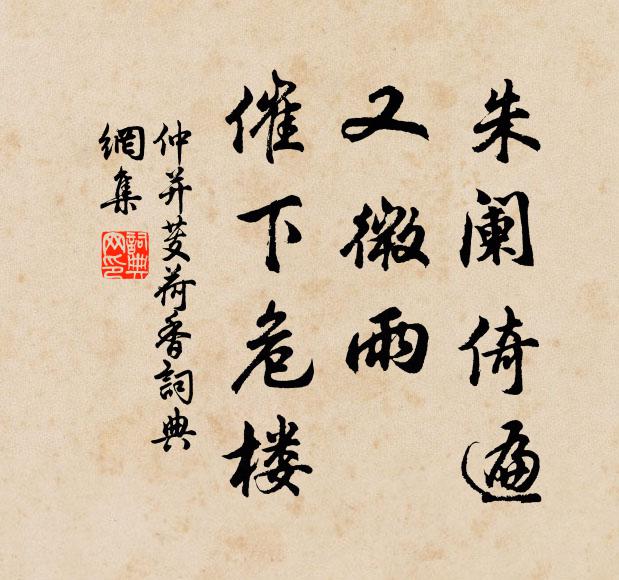 朱阑倚遍
又微雨
催下危楼
仲并芰荷香詞典
網集
詞典網印